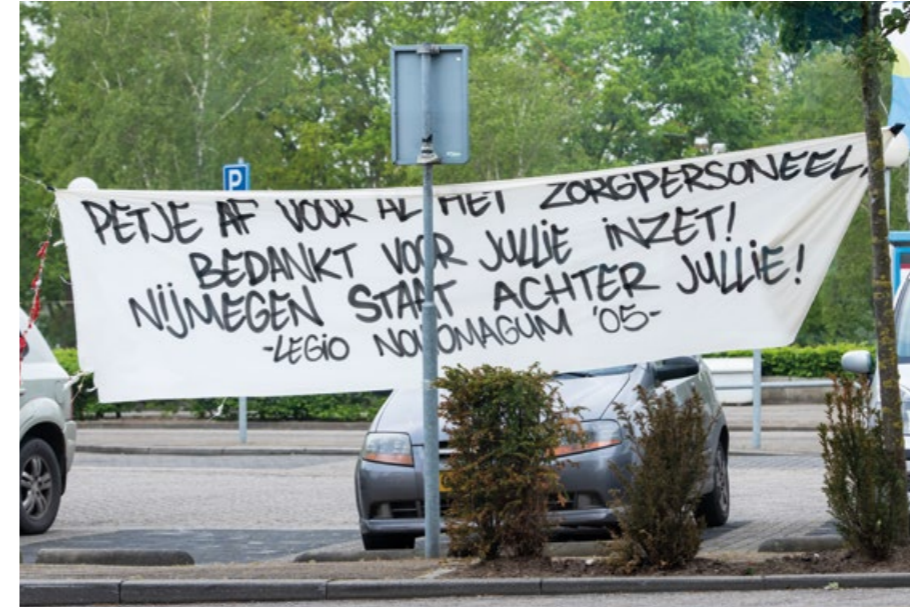 P
PETJE AF VOOR AL HET ZORGPERSONEEL,
BEDANKT VOOR JULLIE INZET!
NIJMEGEN STAAT ACHTER JULLIE!
-LEGIO NOVIOMAGUM '05-